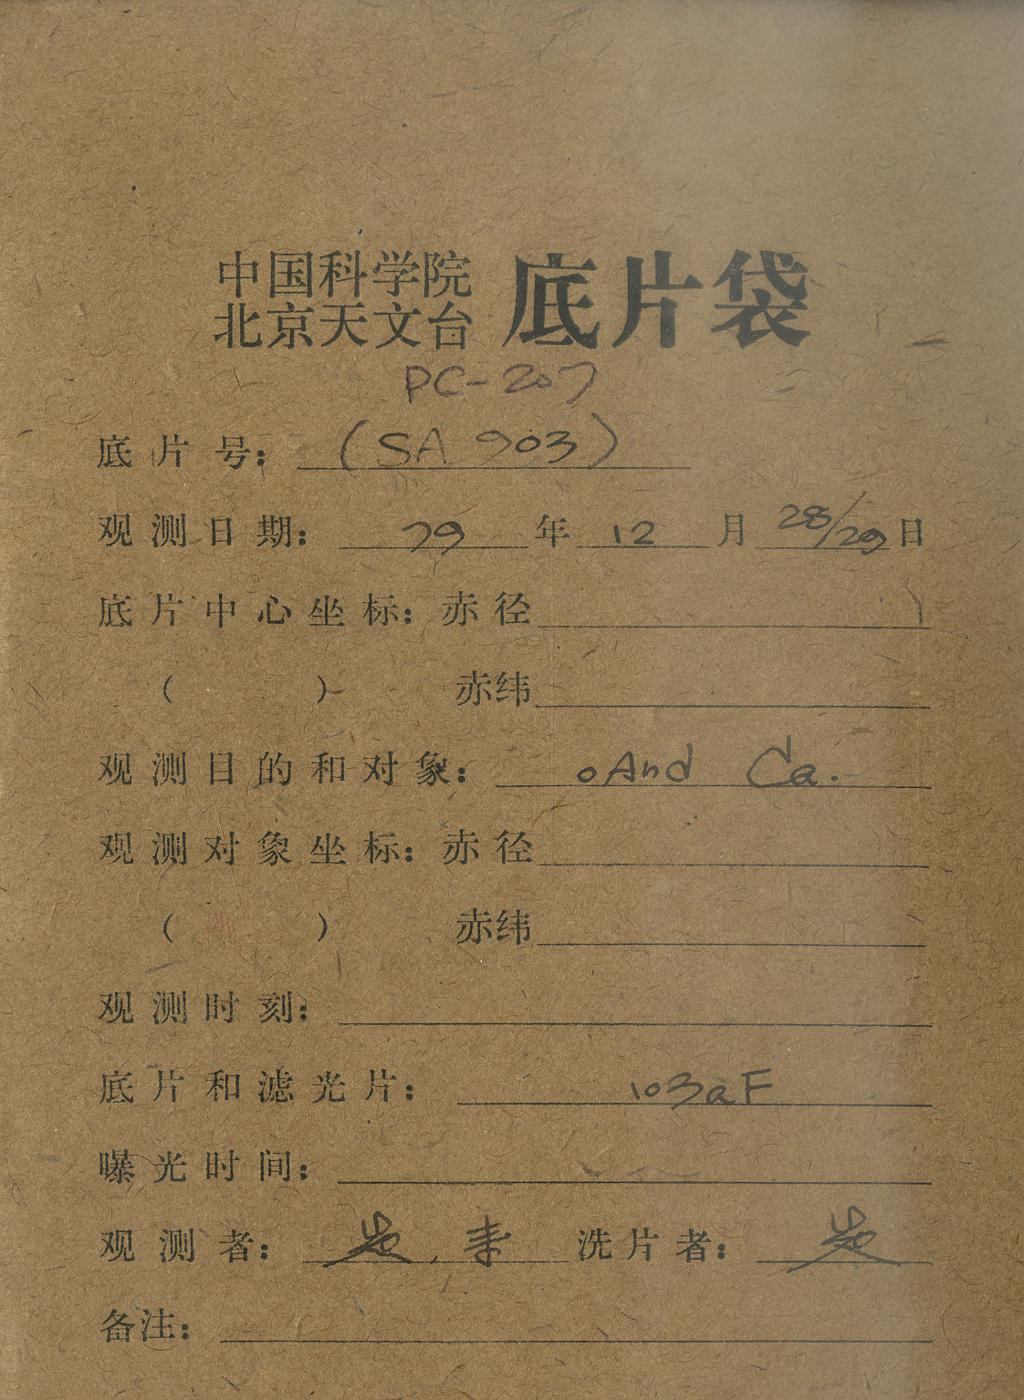 中国科学院
北京天文台 底片袋
PC-207
底片号： (SA 903)
观测日期： 79 年 12 月 28/29 日
底片中心坐标：赤径
( ) 赤纬
观测目的和对象： oAnd Ca.
观测对象坐标：赤径
( ) 赤纬
观测时刻：
底片和滤光片： 103aF
曝光时间：
观测者： 洗片者：
备注：